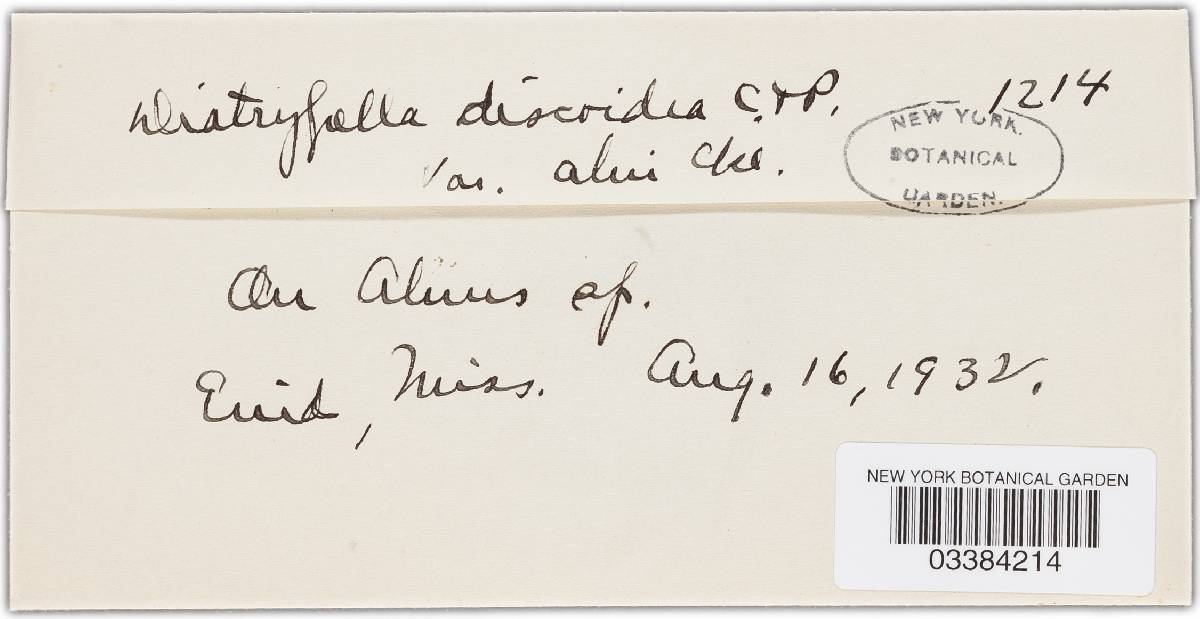 Diatrypella discoidea C.&P. 1214
Var. alni Cke.
NEW YORK.
BOTANICAL
GARDEN.
On Alnus sp.
Enid, Miss. Aug. 16, 1932.
NEW YORK BOTANICAL GARDEN
03384214